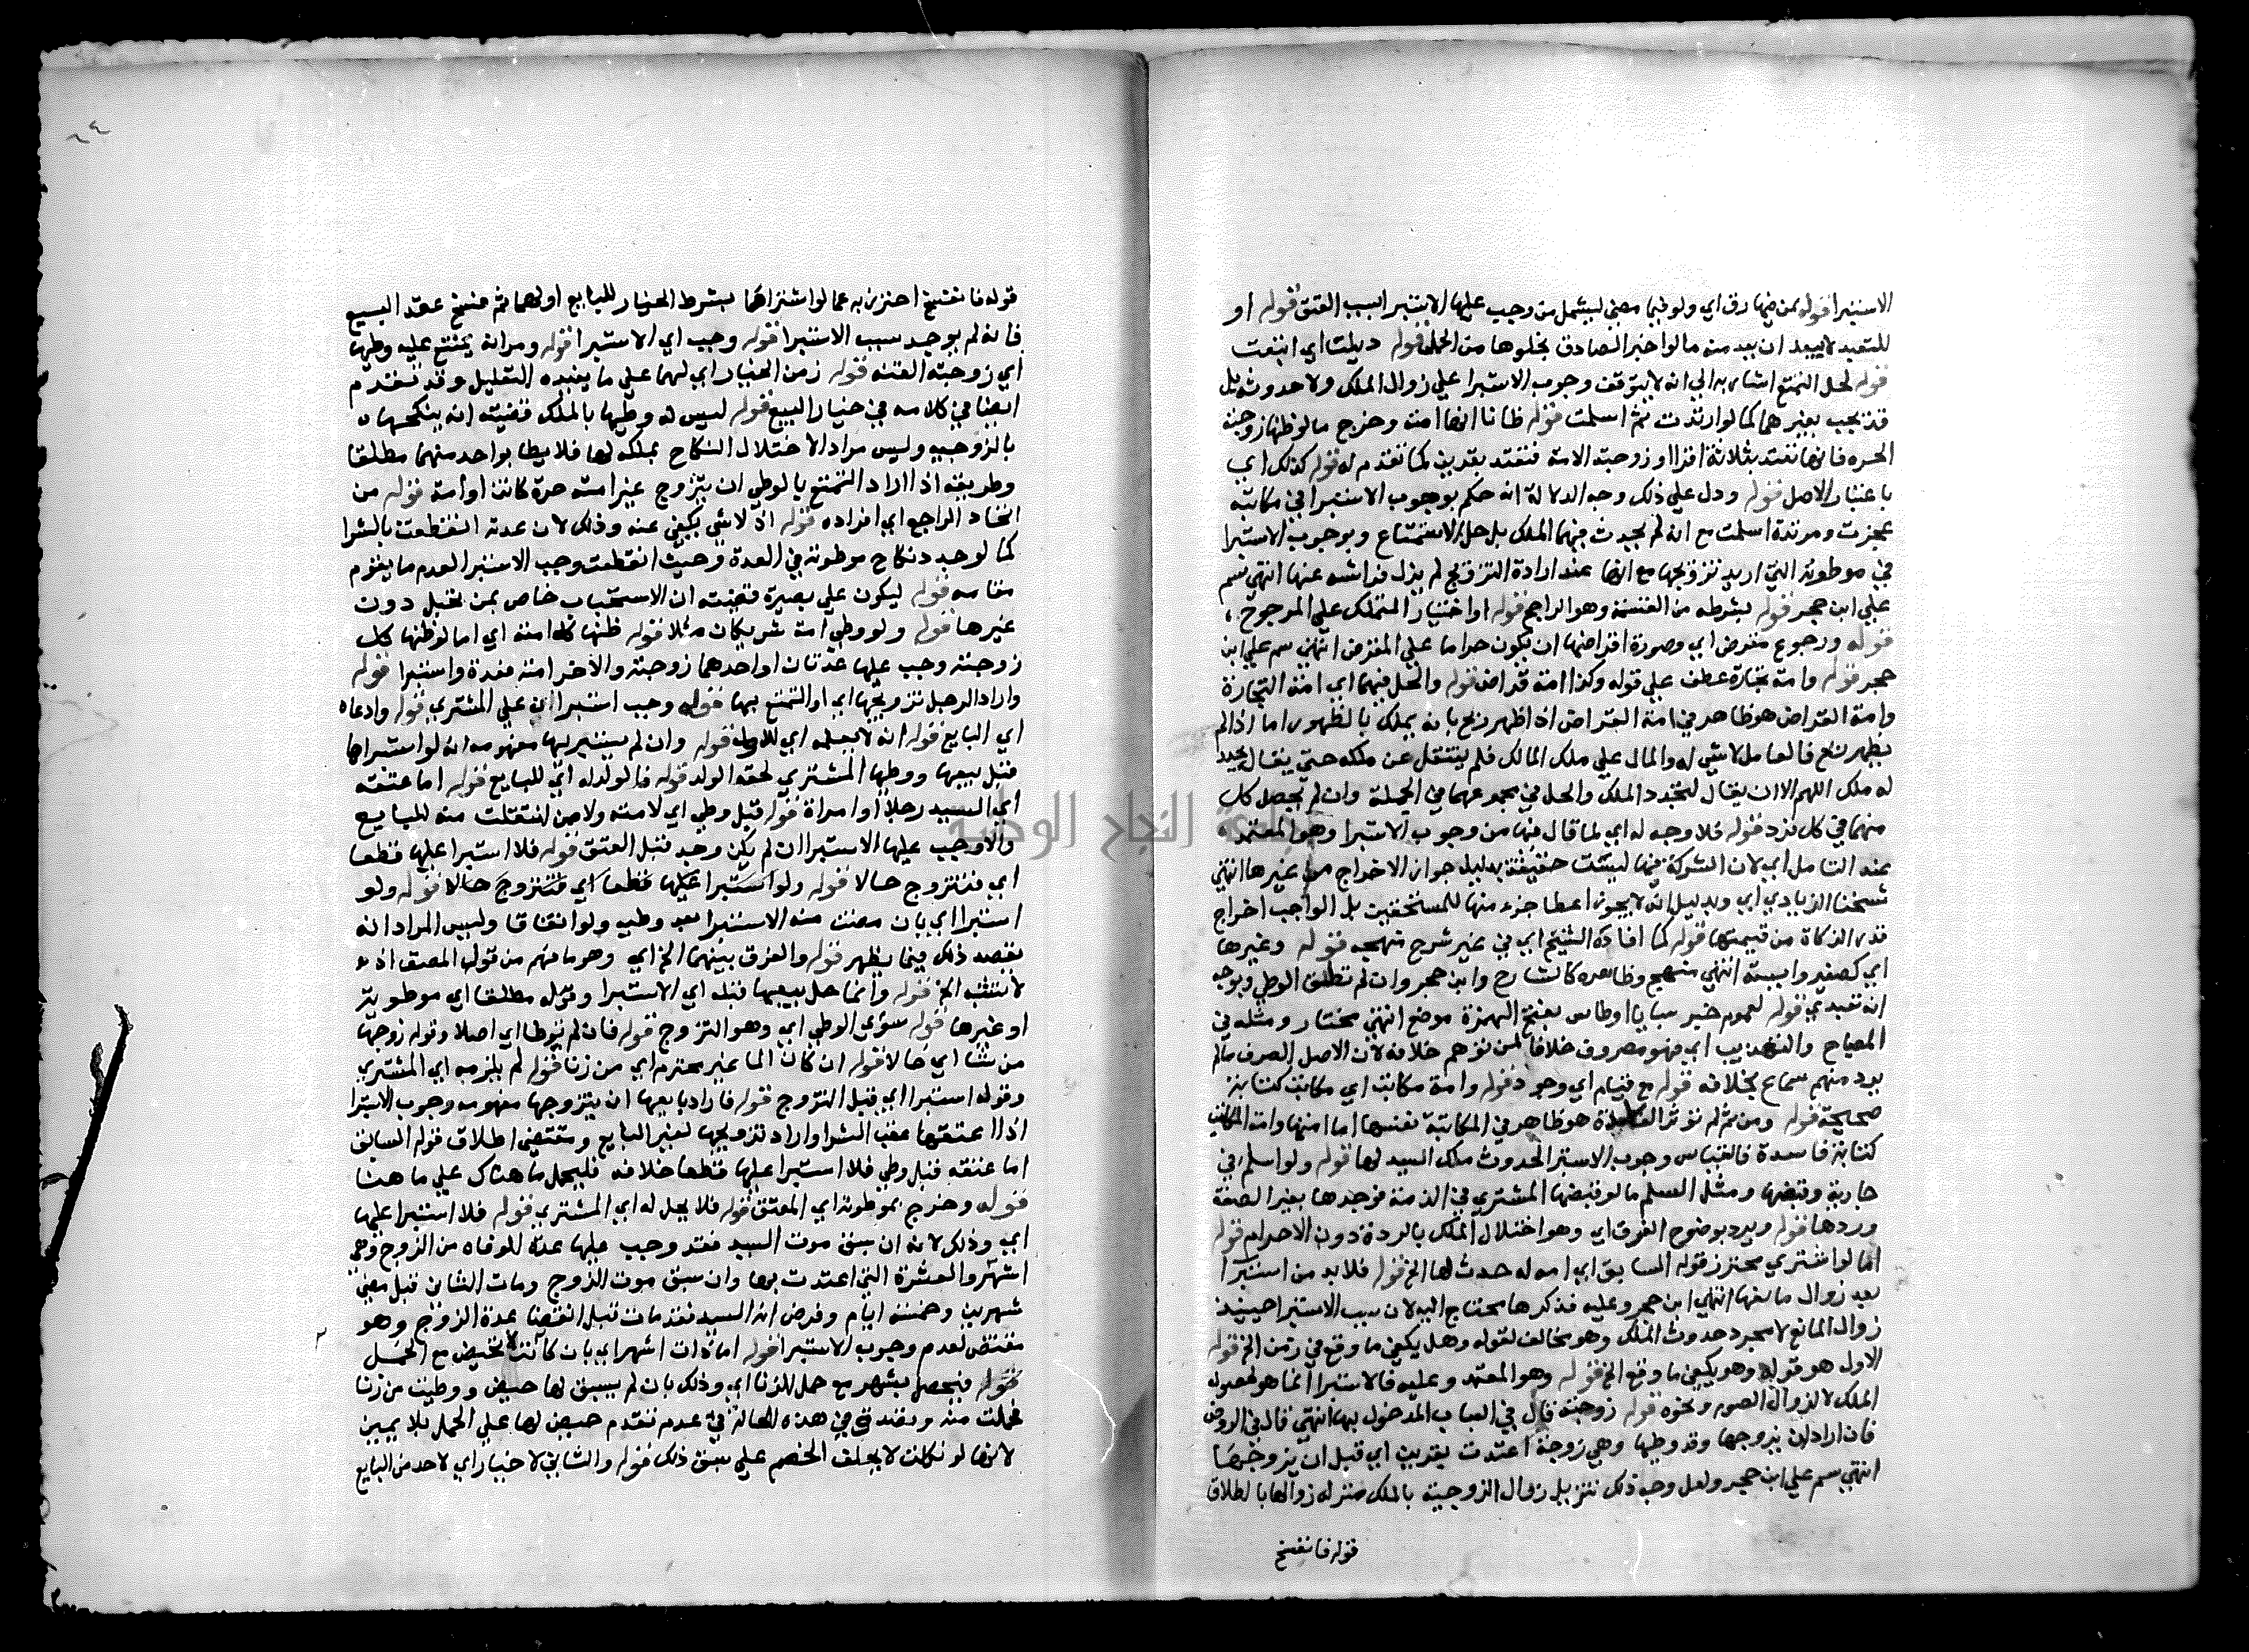 الاستبرا قوله بمن فيها رق اي ولو فيما مضي ليشمل من وجب عليها الاستبرا بسبب العتق قوله او
للتعبد لا يبعد ان يعد منه ما لو اخبر الصادق بخلوها من الحمل قوله اي
قوله لحل التمتع اشار به الي انه لا يتوقف وجوب الاستبرا علي زوال الملك ولا حدوثه بل
قد يجب بغيرهما كما لو ارتدت ثم اسلمت قوله ظانا انها امته وخرج ما لو ظنها زوجته
الحره فانها تعتد بثلاثة اقرا او زوجته الامة فتعتد بقرين كما تقدم له قوله كذلك اي
باعتبار الاصل قوله ودل علي ذلك وجه الدلالة انه حكم بوجوب الاستبرا في مكاتبة
عجزت ومرتدة اسلمت مع انه لم يحدث فيهما الملك بل حل الاستمتاع وبوجوب الاستبرا
في موطوته التي اريد تزويجها مع انها عند ارادة التزويج لم يزل فراشه عنها انتهي سم
علي ابن حجر قوله بشرطه من القسمة وهو الراجح قوله او اختيار التملك علي المرجوح
قوله ورجوع مقرض اي وصورة اقراضها ان يكون حراما علي المقترض انتهي سم علي ابن
حجر قوله وامة تجارة عطف علي قوله وكذا امة قراض قوله والحل فيهما اي امة التجارة
وامة القراض هو ظاهر في امة القراض اذا ظهر ربح بانه يملك بالظهور اما اذا لم
يظهر ربح فالعامل لا شي له والمال علي ملك المالك فلم ينتقل عن ملكه حتي يقال تجدد
له ملك اللهم الا ان يقال لتجدد الملك والحل في مجموعهما في الجملة وان لم يحصل كل
منهما في كل فرد قوله فلا وجه له اي لما قال فيها من وجوب الاستبرا وهو المعتمد
عند التامل اي لان الشركة فيها ليست حقيقية بدليل جواز الاخراج من غيرها انتهي
شيخنا الزيادي اي وبدليل انه لا يجوز اعطا جزء منها للمستحقين بل الواجب اخراج
قدر الزكاة من قيمتها قوله كما افاده الشيخ اي في غير شرح منهجه قوله وغيرها
اي كصغير وايسة انتهي منهج وظاهره كالشارح وابن حجر وان لم تطق الوطي ويوجه
انه تعبدي قوله لعموم خبر سبايا اوطاس بفتح الهمزة موضع انتهي مختار ومثله في
المصباح والتهذيب اي فهو مصروف خلافا لمن توهم خلافه لان الاصل الصرف ما لم
يرد منهم سماع بخلافه قوله مع قيام اي وجود قوله وامة مكاتب اي مكاتب كتابة
صحيحة قوله ومن ثم لم تؤثر الفاسدة هو ظاهر في المكاتبة نفسها اما امتها وامة المكاتب
كتابة فاسدة فالقياس وجوب الاستبرا لحدوث ملك السيد لها قوله ولو اسلم في
جارية وقبضها ومثل السلم ما لو قبضها المشتري في الذمة فوجدها بغير الصفة
وردها قوله ويرد بوضوح الفرق اي وهو اختلال الملك بالردة دون الاحرام قوله
اما لو اشتري محترز قوله السابق اي امة له حدث لها الخ قوله فلا بد من استبرا
بعد زوال مانعها انتهي ابن حجر وعليه فذكرها محتاج اليه لان سبب الاستبرا حينيذ
زوال المانع لا مجرد حدوث الملك وهو مخالف لقوله وهل يكفي ما وقع في زمن الخ قوله
الاول هو قوله وهو يكفي ما وقع الخ قوله وهو المعتمد وعليه فالاستبرا انما هو لحصول
الملك لا لزوال الصوم ونحوه قوله زوجته قال في العباب المدخول بها انتهي قال في الروض
فان اراد ان يزوجها وقد وطيها وهي زوجة اعتدت بقرين اي قبل ان يزوجها
انتهي سم علي ابن حجر ولعل وجه ذلك تنزيل زوال الزوجية بالملك منزلة زوالها بالطلاق
قوله فانفسخ
قوله فانفسخ احترز به عما لو اشتراها بشرط الخيار للبايع او لهما ثم فسخ عقد البيع
فانه لم يوجد سبب الاستبرا قوله وجب اي الاستبرا قوله ومر انه يمتنع عليه وطيها
اي زوجته القنه قوله زمن الخيار اي لهما علي ما يفيده التعليل وقد تقدم
ايضا في كلامه في خيار البيع قوله ليس له وطيها بالملك قضيته انه ينكحها
بالزوجيه وليس مرادا لاختلال النكاح بملكه لها فلا يطا بواحد منهما مطلقا
وطريقه اذا اراد التمتع بالوطي ان يتزوج غير امته حرة كانت او امة قوله من
اتحاد الراجع اي افراده قوله اذ لا شي يكفي عنه وذلك لان عدته انقطعت بالشرا
كما لو جدد نكاح موطوته في العدة وحيث انقطعت وجب الاستبرا لعدم ما يقوم
مقامه قوله ليكون علي بصيرة قضيته ان الاستحباب خاص بمن تحبل دون
غيرها قوله ولو وطي امة شريكان مثلا قوله ظنها كل امته اي اما لو ظنها كل
زوجته وجب عليها عدتان او احدهما زوجته والاخر امته فعدة واستبرا قوله
واراد الرجل تزويجها اي او التمتع بها قوله وجب استبرا ان علي المشتري قوله وادعاه
اي البايع قوله انه لا يعلمه اي للوطي قوله وان لم يستبريها مفهومه انه لو استبراها
قبل بيعها ووطيها المشتري لحقه الولد قوله فالولد له اي للبايع قوله اما عتقته
اي السيد رجلا او امراة قوله قبل وطي اي لامته ولا ممن انتقلت منه للبايع
والا وجب عليها الاستبرا ان لم يكن وجد قبل العتق قوله فلا استبرا عليها قطعا
اي فتتزوج حالا قوله ولو استبرا عليها قطعا اي فتتزوج حالا قوله ولو
استبرا اي بان مضت مدة الاستبرا بعد وطيه ولو اتفاقا وليس المراد انه
يقصد ذلك فيما يظهر قوله والفرق بينهما الخ اي وهو ما فهم من قول المصنف اذ
لا تشبه الخ قوله وانما حل بيعها قبله اي الاستبرا وقوله مطلقا اي موطوته
او غيرها قوله سوي الوطي اي وهو التزوج قوله فان لم توطا اي اصلا وقوله زوجها
من شا اي حالا قوله ان كان الما غير محترم اي من زنا قوله لم يلزمه اي المشتري
وقوله استبرا اي قبل التزوج قوله فاراد بايعها ان يتزوجها مفهومه وجوب الاستبرا
اذا اعتقها عقب الشرا واراد تزويجها لغير البايع ومقتضي اطلاق قوله السابق
اما عتقته قبل وطي فلا استبرا عليها قطعا خلافه فليحمل ما هناك علي ما هنا
قوله وخرج بموطوته اي المعتق قوله فلا يحل له اي المشتري قوله فلا استبرا عليها
اي وذلك لانه ان سبق موت السيد فقد وجب عليها عدة للوفاه من الزوج وهي اربعة
اشهر والعشرة التي اعتدت بها وان سبق موت الزوج ومات الثاني قبل مضي
شهرين وخمسة ايام وفرض ان السيد فقد مات قبل انقضا عدة الزوج وهو
مقتض لعدم وجوب الاستبرا قوله اما ذات اشهر اي بان كانت لا تحيض مع الحمل
قوله فيحصل بشهر مع حمل الزنا اي وذلك بان لم يسبق لها حيض ووطيت من زنا
فحملت منه وتصدق في هذه الحالة في عدم تقدم حيض لها علي الحمل بلا يمين
لانها لو نكلت لا يحلف الخصم علي سبق ذلك قوله والثاني لا خيار اي لاحد من البايع